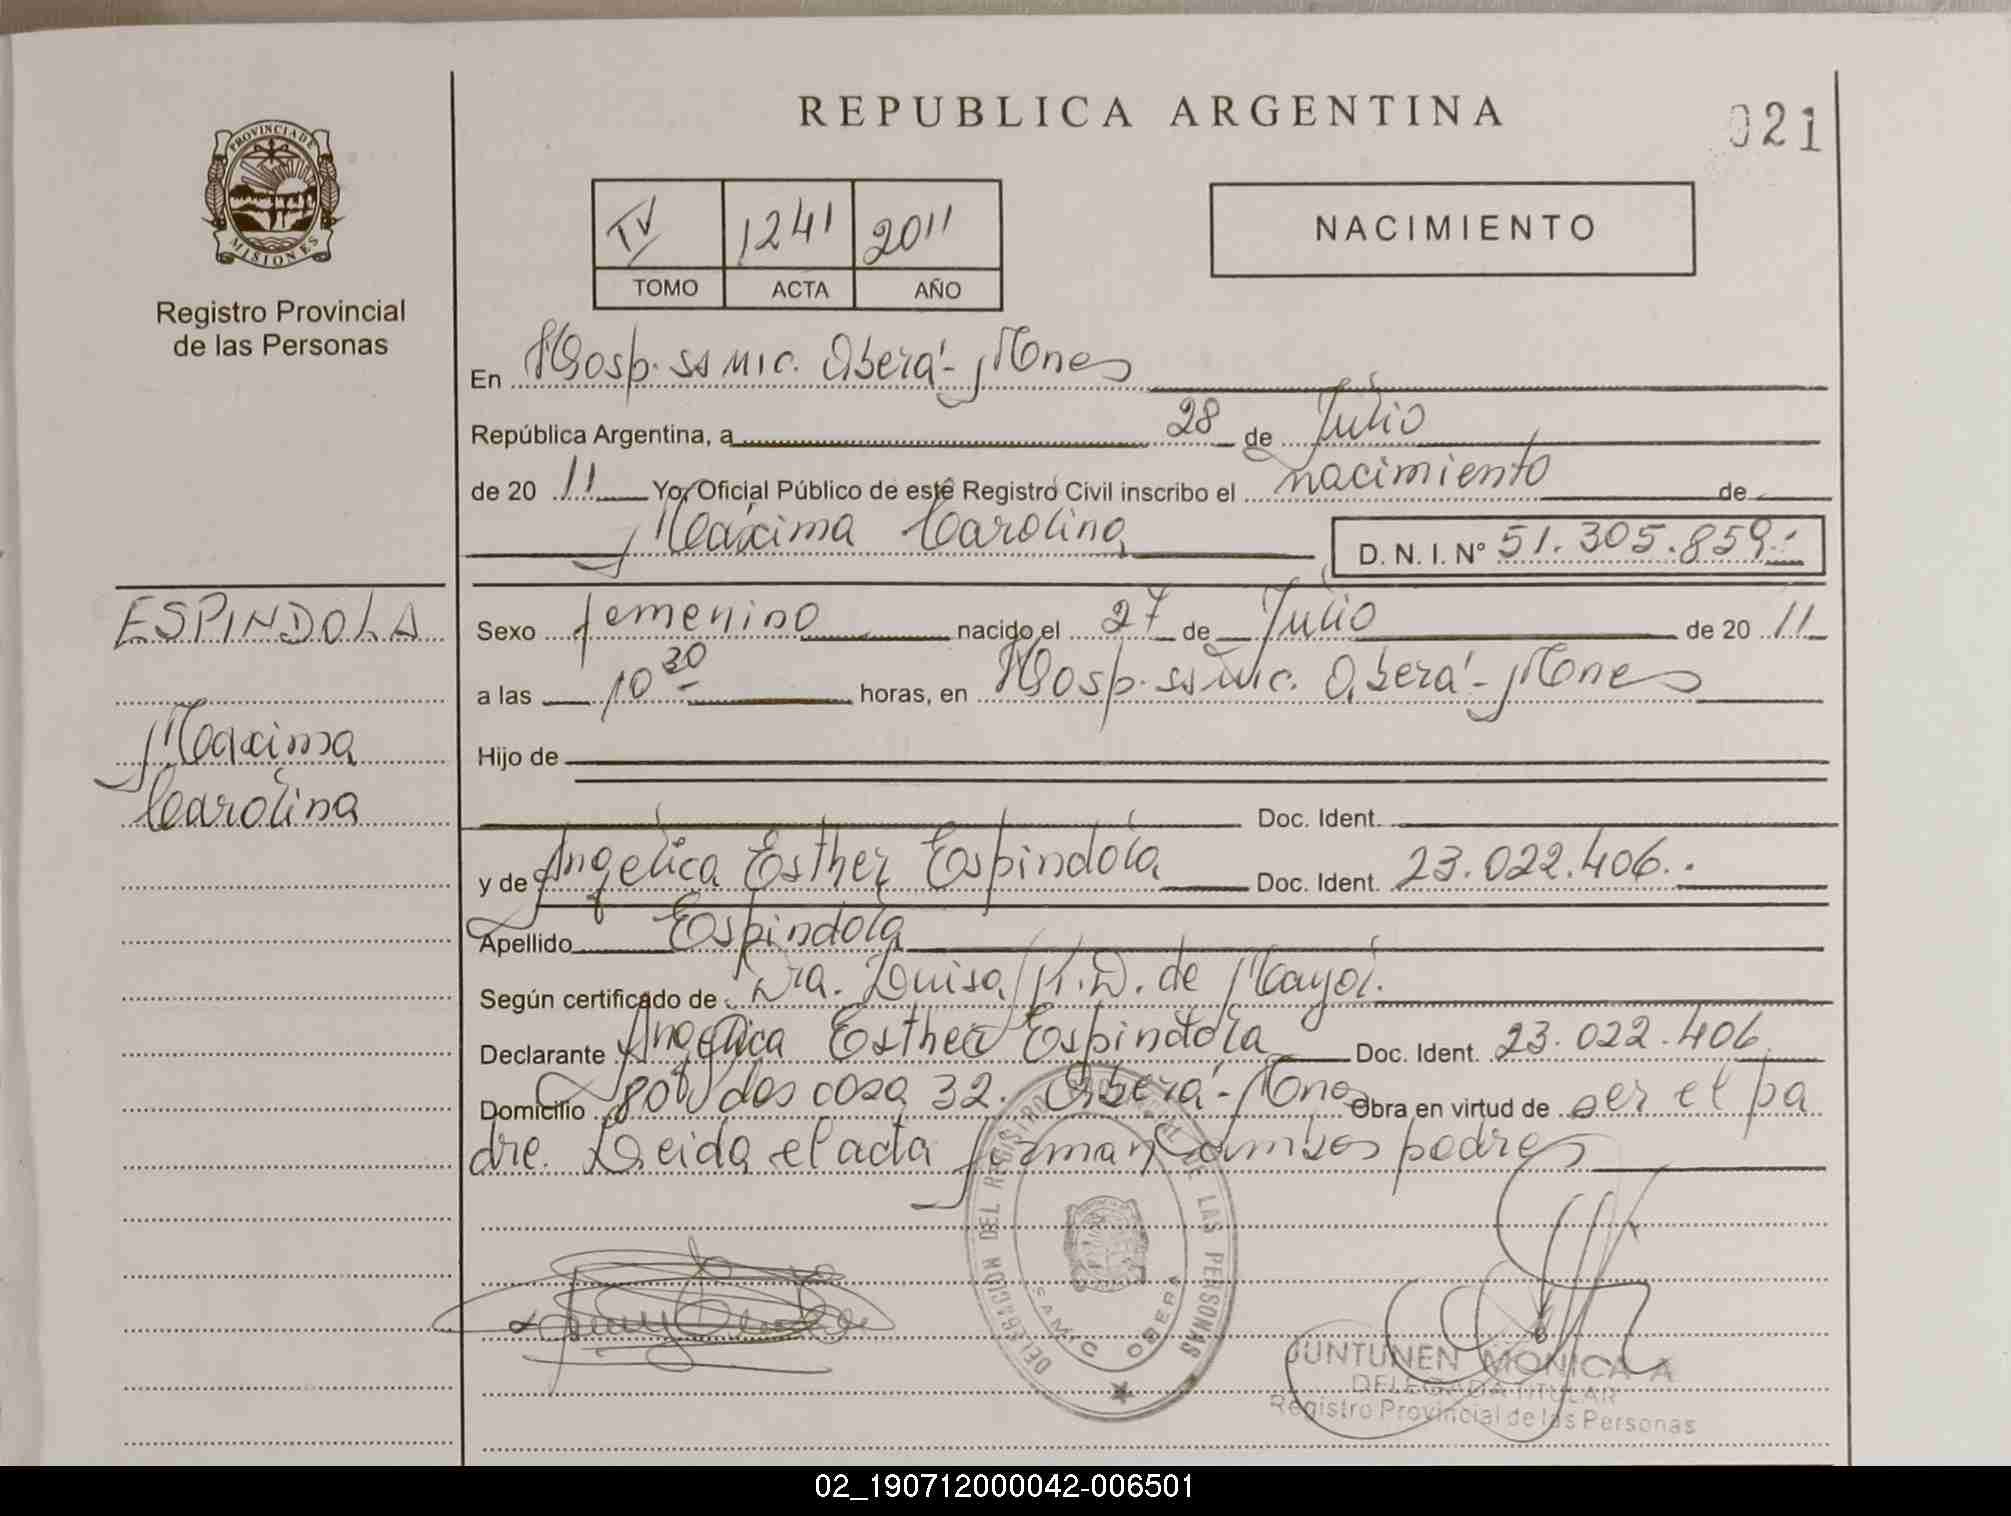 REPUBLICA ARGENTINA
021
PROVINCIA DE
MISIONES
Registro Provincial
de las Personas
TV 1241 2011
TOMO ACTA AÑO
NACIMIENTO
En Hosp. ss mic. Oberá - Mones
República Argentina, a 28 de Julio
de 20 11 Yo, Oficial Público de este Registro Civil inscribo el nacimiento de
Máxima Carolina D. N. I. N° 51.305.859.-
ESPINDOLA
Máxima
Carolina
Sexo femenino nacido el 27 de Julio de 20 11
a las 10 30 horas, en Hosp. ss mic. Oberá - Mones
Hijo de
Doc. Ident.
y de Angélica Esther Espindola Doc. Ident. 23.022.406.
Apellido Espindola
Según certificado de Dra. Luisa K. D. de
Declarante Angélica Esther Espindola Doc. Ident. 23.022.406
Domicilio dos casa 32. Oberá - Mones Obra en virtud de ser el pa
dre. Leida el acta firman ambos padres
DELEGACION DEL REGISTRO PROVINCIAL DE LAS PERSONAS
SAMIC OBERA
JUNTUNEN MONICA A
DELEGADA TITULAR
Registro Provincial de las Personas
02_190712000042-006501